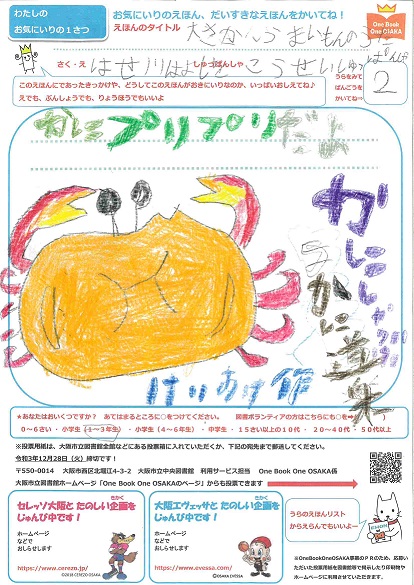 わたしの
お気にいりの１さつ
お気にいりのえほん、だいすきなえほんをかいてね！
One Book
One OSAKA
えほんのタイトル
大さかうまいもんのうた
さく・え
はせ川よしふみ
しゅっぱんしゃ
こうせいしゅっぱん
うらをみて
ばんごうを
かいてね→
2
このえほんにであったきっかけや、どうしてこのえほんがおきにいりなのか、いっぱいおしえてね♪
えでも、ぶんしょうでも、りょうほうでもいいよ
プリプリだよ
かにしゃぶ
かに道楽
★あなたはおいくつですか？　あてはまるところに○をつけてください。
図書ボランティアの方はこちらにも○を⇒
0～6さい ・ 小学生（1～3年生） ・ 小学生（4～6年生） ・ 中学生 ・ 15さい以上の10代 ・ 20～40代 ・ 50代以上
※投票用紙は、大阪市立図書館全館などにある投票箱に入れていただくか、下記の宛先まで郵送してください。
令和3年12月28日（火）締切です！
〒550-0014　大阪市西区北堀江4-3-2　大阪市立中央図書館　利用サービス担当　One Book One OSAKA係
大阪市立図書館ホームページ「One Book One OSAKAのページ」からも投票できます
セレッソ大阪と たのしい企画を
きかく
じゅんび中です！
ホームページ
などで
おしらせします
https://www.cerezo.jp/
大阪エヴェッサと たのしい企画を
きかく
じゅんび中です！
ホームページ
などで
おしらせします
https://www.evessa.com/
©OSAKA EVESSA
うらのえほんリスト
からえらんでもいいよ！
※OneBookOneOSAKA事業のPRのため、応募い
ただいた投票用紙を図書館等で掲示したり印刷物や
ホームページに利用させていただきます。